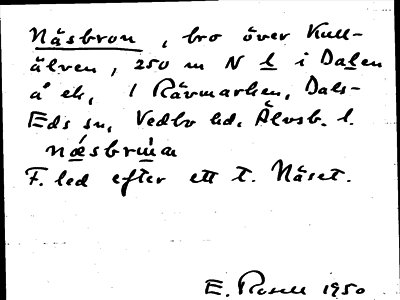 Näsbron, bro över Kull-
älven, 250 m N l i Dalen
å ek, i Rävmarken, Dals-
Eds sn, Vedbo hd, Älvsb. l.
næsbrụ̀n
F. led efter ett t. Näset.
E. Rosell 1950